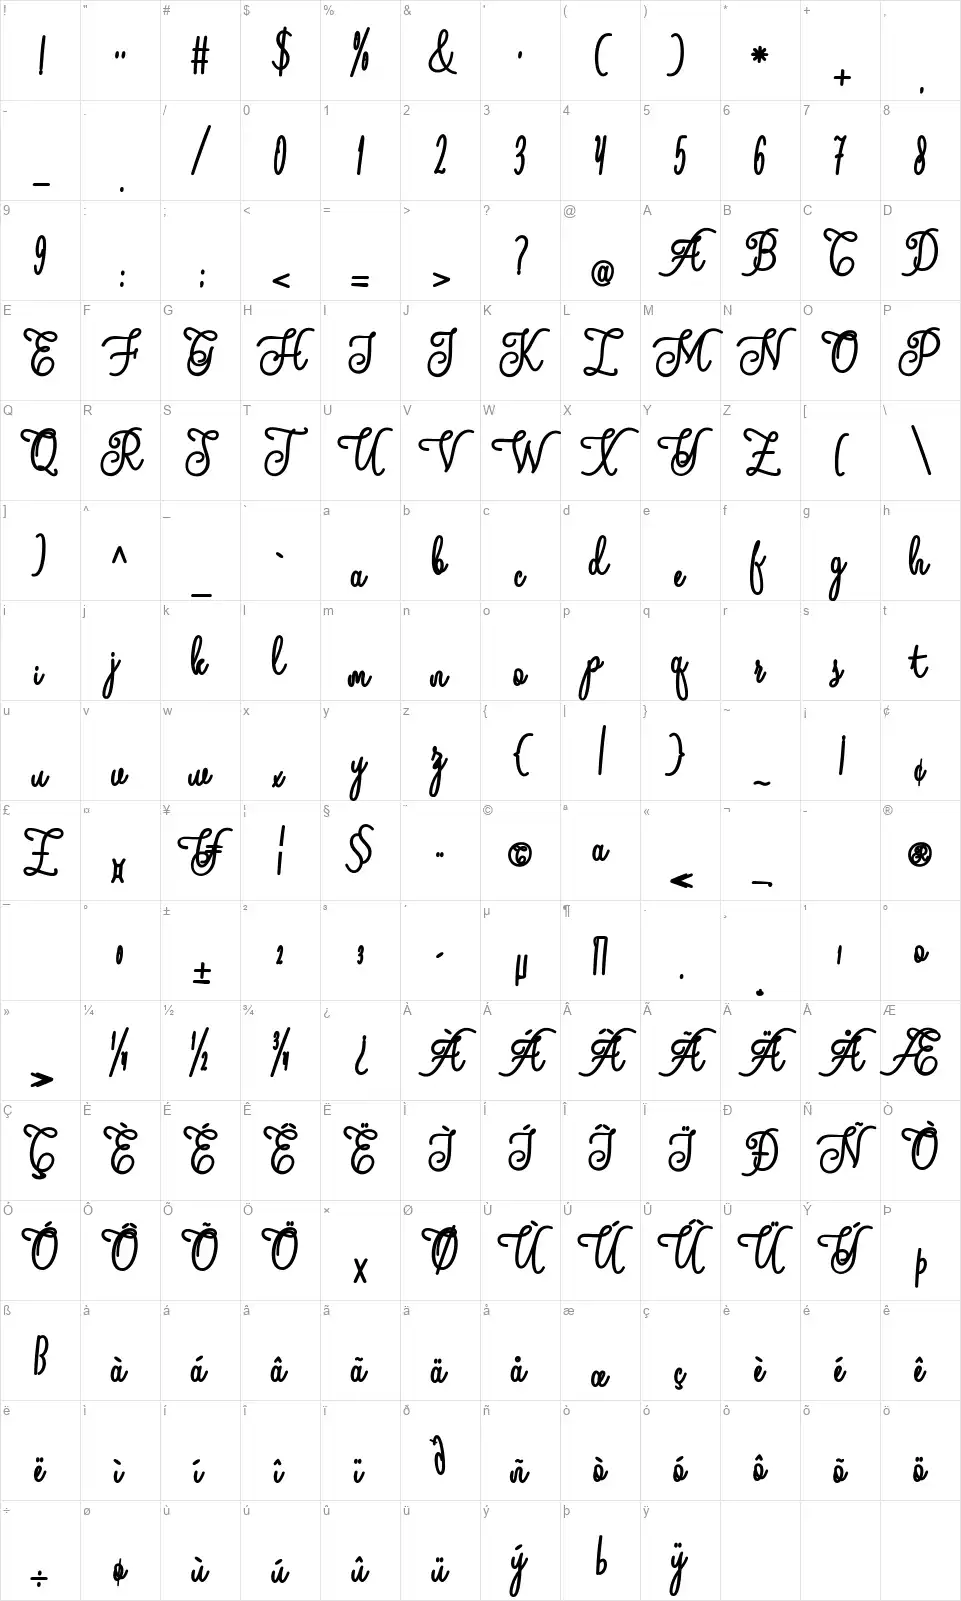 ! " # $ % & ' ( ) * + ,
! " # $ % & ' ( ) * + ,
- . / 0 1 2 3 4 5 6 7 8
- . / 0 1 2 3 4 5 6 7 8
9 : ; < = > ? @ A B C D
9 : ; < = > ? @ A B C D
E F G H I J K L M N O P
E F G H I J K L M N O P
Q R S T U V W X Y Z [ \
Q R S T U V W X Y Z ( \
] ^ _ ` a b c d e f g h
) ^ _ ` a b c d e f g h
i j k l m n o p q r s t
i j k l m n o p q r s t
u v w x y z { | } ~ ¡ ¢
u v w x y z { | } ~ ¡ ¢
£ ¤ ¥ ¦ § ¨ © ª « ¬ - ®
£ ¤ ¥ ¦ § ¨ © ª « ¬ ®
¯ ° ± ² ³ ´ µ ¶ · ¸ ¹ º
° ± ² ³ ´ µ ¶ · ¸ ¹ º
» ¼ ½ ¾ ¿ À Á Â Ã Ä Å Æ
» ¼ ½ ¾ ¿ À Á Â Ã Ä Å Æ
Ç È É Ê Ë Ì Í Î Ï Ð Ñ Ò
Ç È É Ê Ë Ì Í Î Ï Ð Ñ Ò
Ó Ô Õ Ö × Ø Ù Ú Û Ü Ý Þ
Ó Ô Õ Ö × Ø Ù Ú Û Ü Ý Þ
ß à á â ã ä å æ ç è é ê
ß à á â ã ä å æ ç è é ê
ë ì í î ï ð ñ ò ó ô õ ö
ë ì í î ï ð ñ ò ó ô õ ö
÷ ø ù ú û ü ý þ ÿ
÷ ø ù ú û ü ý þ ÿ